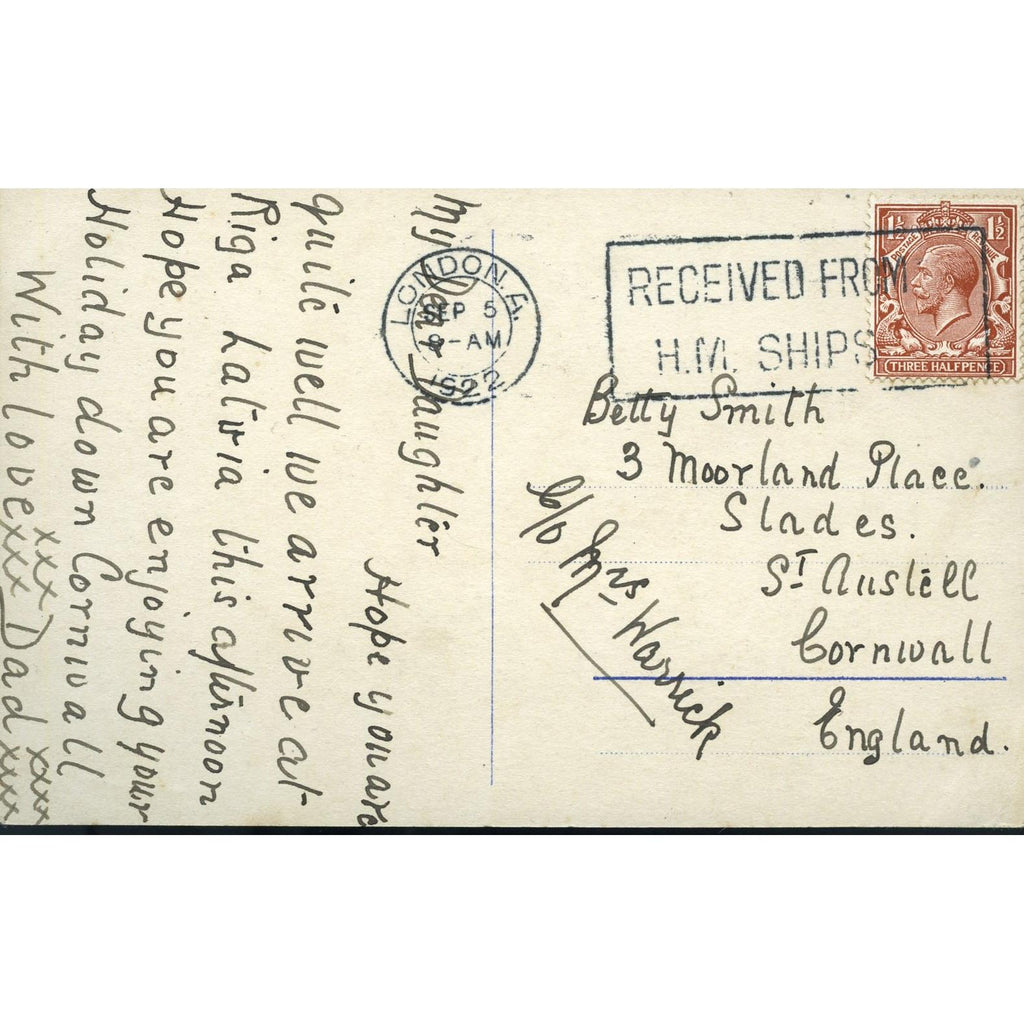 My Dear Daughter
Hope you are
quite well we arrive at
Riga Latvia this afternoon
Hope you are enjoying your
Holiday down Cornwall
With love Dad
xxx xxx
xxx xxxx
LONDON. A.
SEP 5
8-AM
1922
RECEIVED FROM
H.M. SHIPS
1½ 1½
POSTAGE REVENUE
THREE HALFPENCE
Betty Smith
3 Moorland Place.
Slades.
St Austell
Cornwall
England.
c/o Mrs Warrick